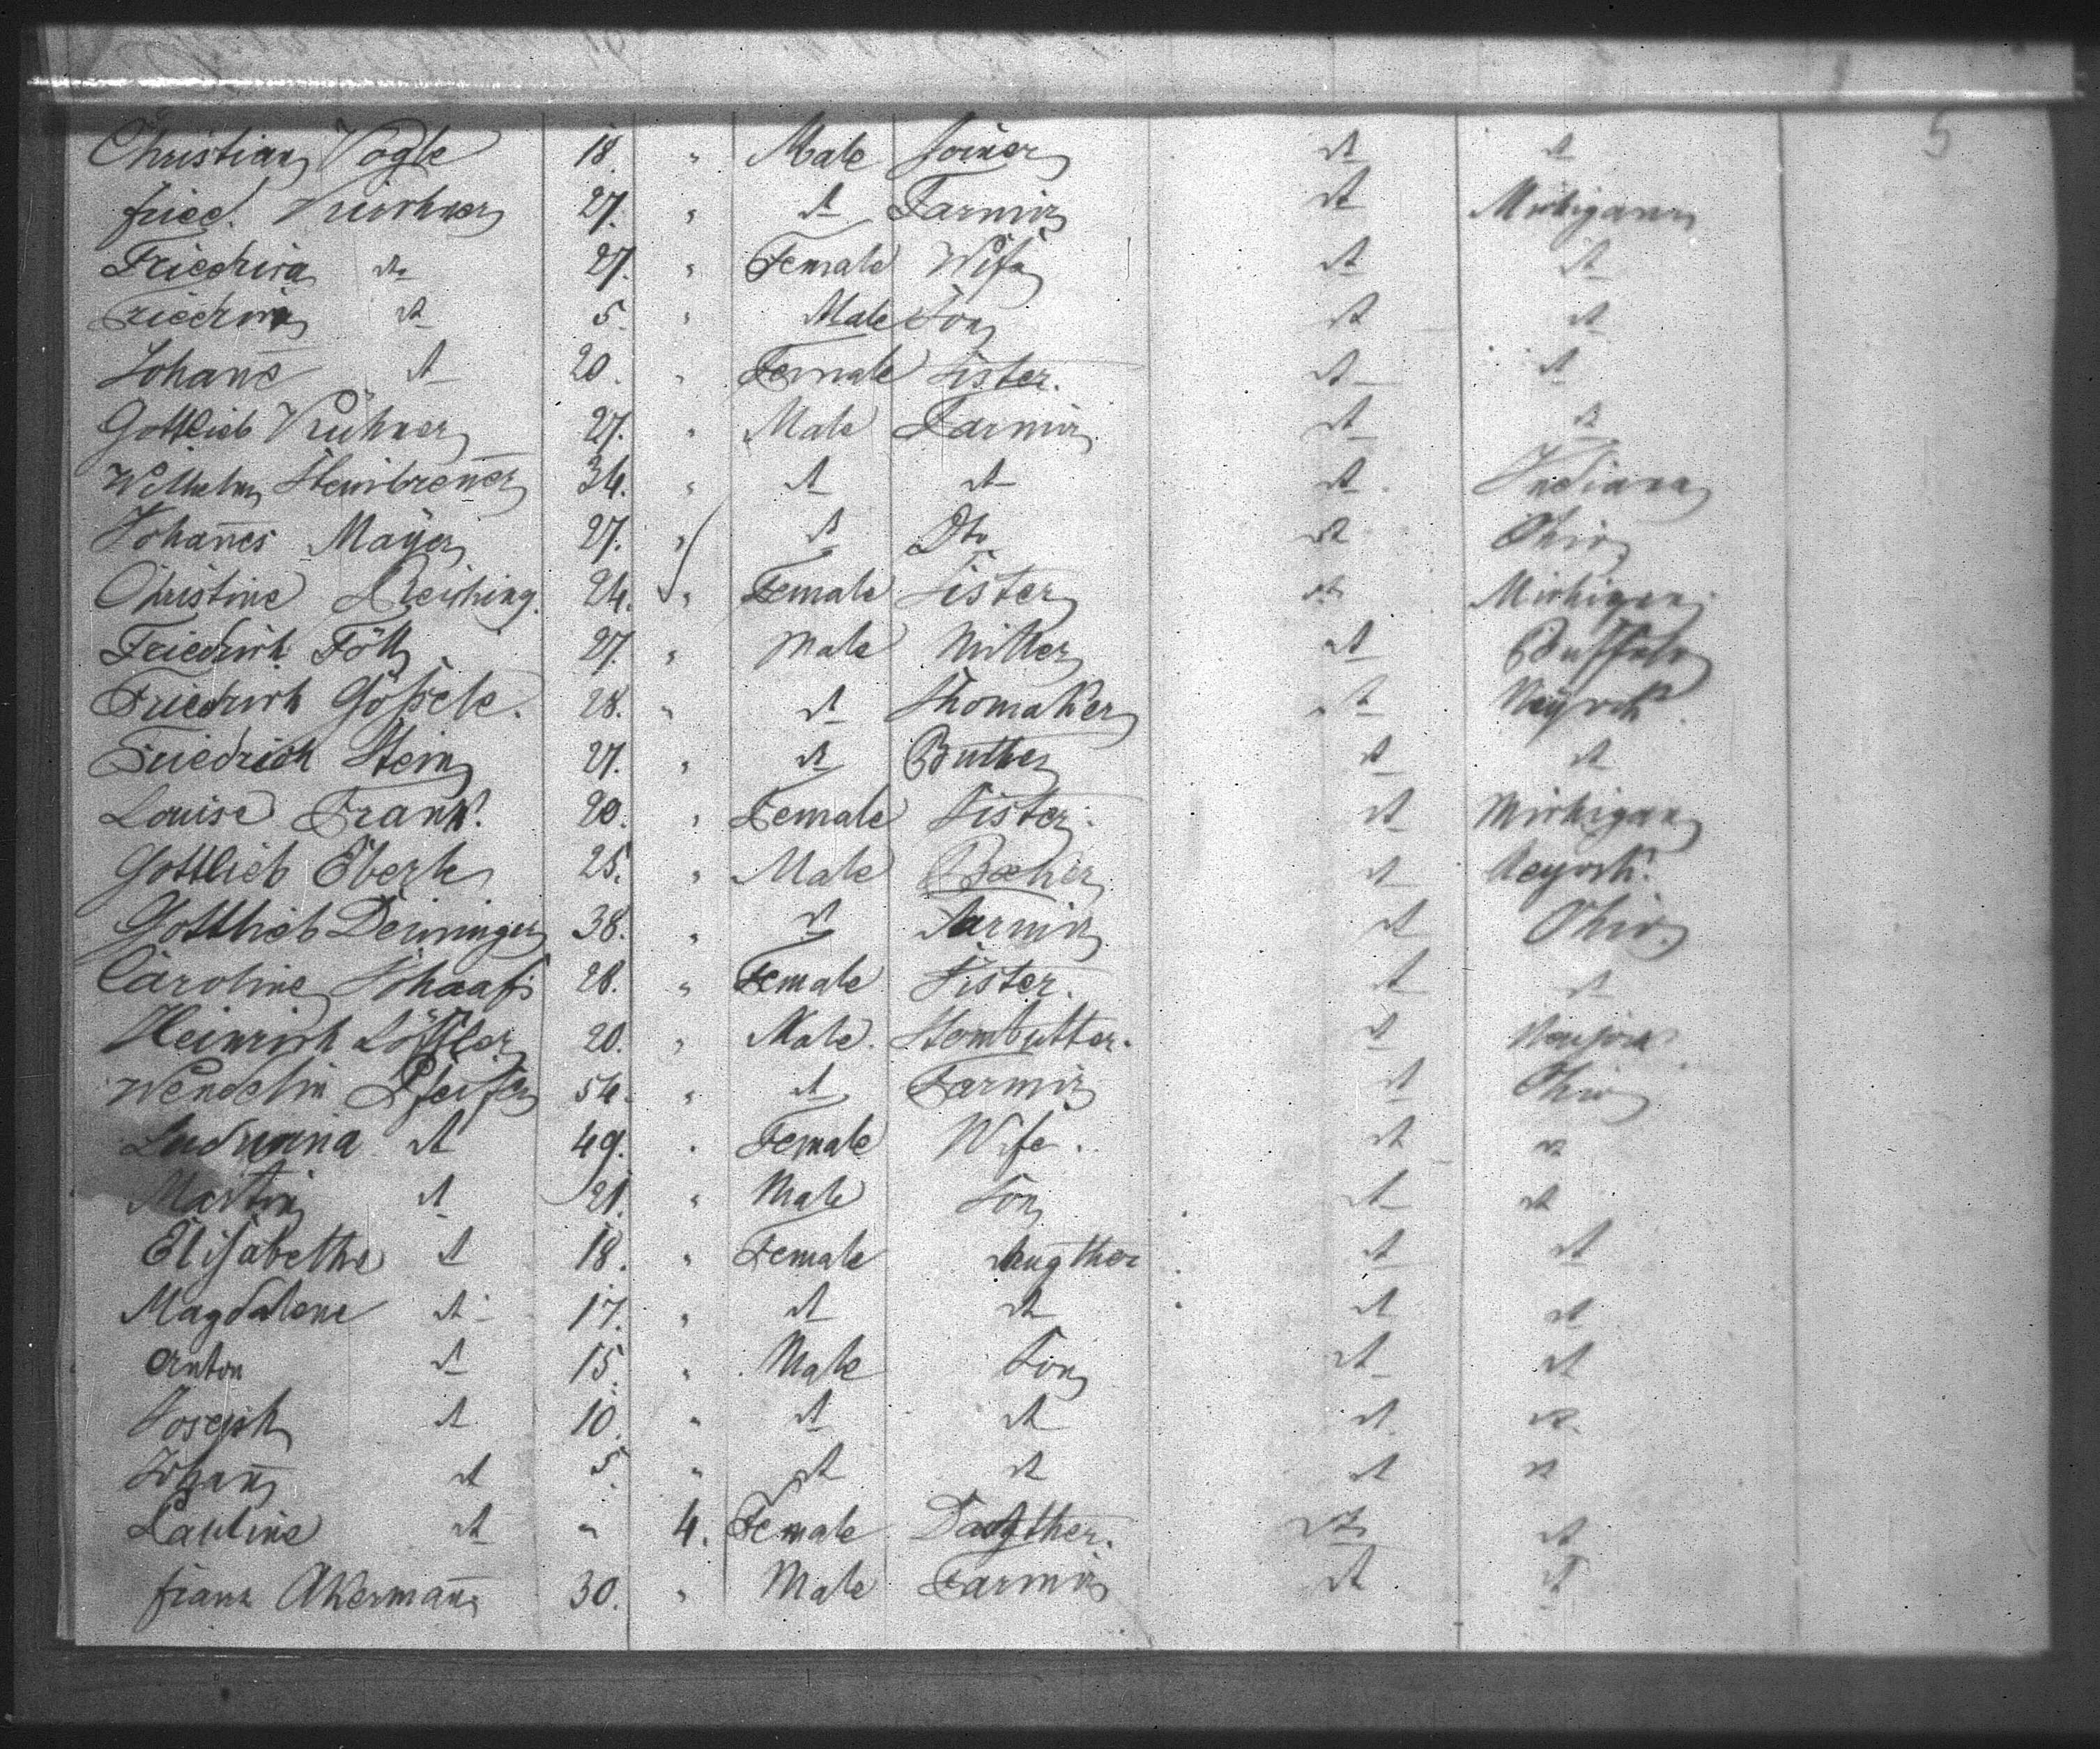 5
Christian Vogle 18. " Male Joiner dt dt
fried. Kirchner 27. " dt Farmir dt Michigann
Friedrica dt 27. " Female Wife dt dt
Friedrich dt 5. " Male Son dt dt
Johane dt 20. " Female Sister. dt dt
Gottlieb Kühner 27. " Male Farmir dt dt
Wilhelm Steinbrener 34. " dt dt dt Indiana
Johannes Mayer 27. " dt Dto dt Ohio
Christine 24. " Female Sister dt Michigan
Friedrich Föll 27. " Male Miller dt Buffalo
Friedrich Gößele. 28. " dt Shomaker dt Neyork
Friedrich Stein 27. " dt Buther dt dt
Louise Frank. 20. " Female Sister. dt Michigan
Gottlieb Eberle 25. " Male Becker dt Neyork.
Gottlieb Deininger 38. " dt Farmir dt Ohio.
Caroline Schaafs 28. " Female Sister. dt dt
Heinrich Löffler 20. " Male. Stombutter. dt Neuyork
Wendelin Pfeifer 54. " dt Farmir dt Ohio
dt 49. " Female Wife. dt dt
Martin dt 21. " Male Son dt dt
Elisabetha dt 18. " Female daugther dt dt
Magdalene dt 17. " dt dt dt dt
Anton dt 15. " Male Son dt dt
Joseph dt 10. " dt dt dt dt
Johann dt 5. " dt dt dt dt
Pauline dt " 4. Female Daugther. dt dt
franz Akermann 30. " Male Farmir dt dt